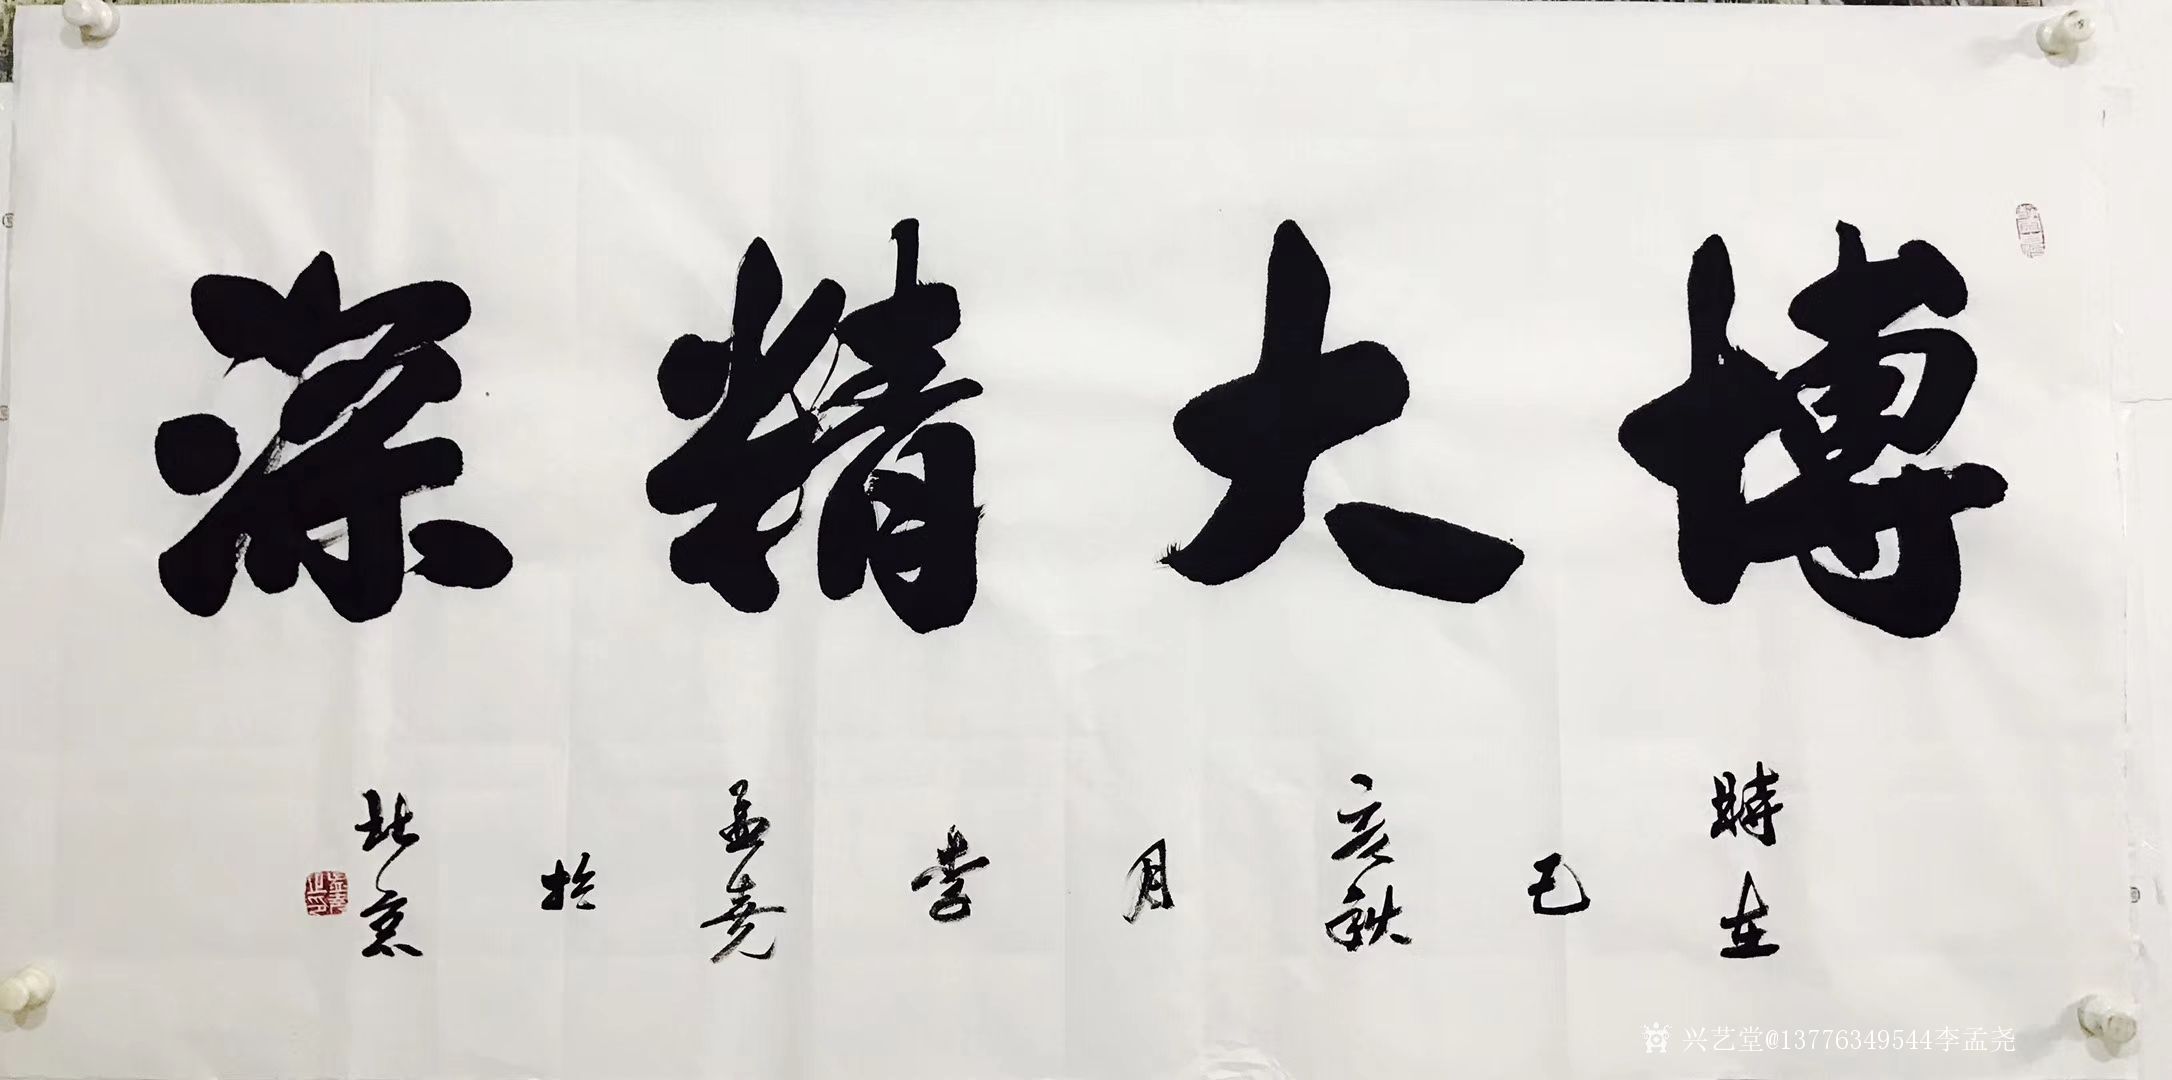 博大精深
時在己亥秋月李孟堯於北京
兴艺堂@13776349544李孟尧